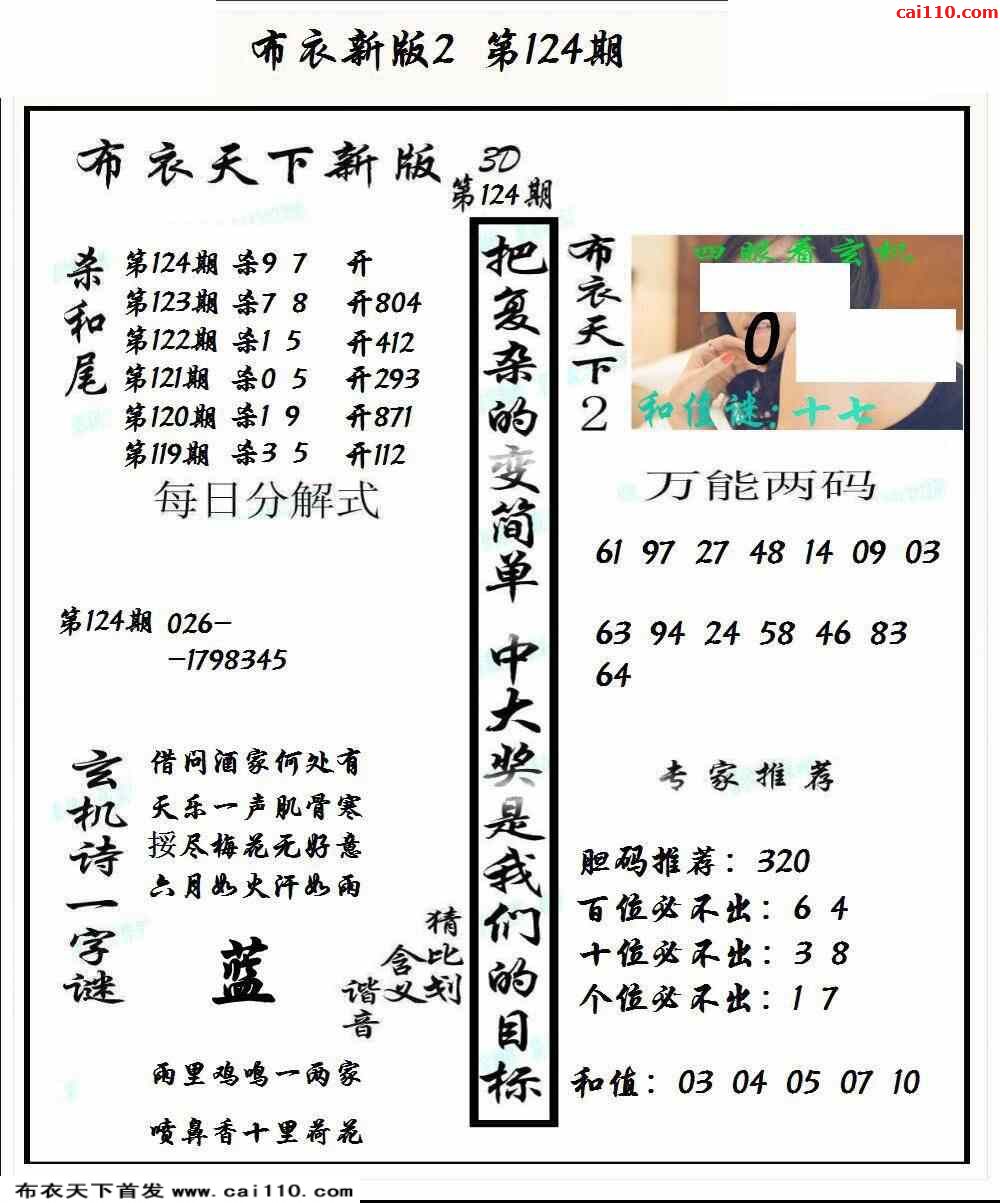 cai110.com
布衣新版2 第124期
布衣天下新版 3D
第124期
杀和尾
第124期 杀9 7 开
第123期 杀7 8 开804
第122期 杀1 5 开412
第121期 杀0 5 开293
第120期 杀1 9 开871
第119期 杀3 5 开112
每日分解式
第124期 026-
-1798345
玄机诗一字谜
借问酒家何处有
天乐一声肌骨寒
挼尽梅花无好意
六月如火汗如雨
蓝
猜比划
含义
谐音
雨里鸡鸣一两家
喷鼻香十里荷花
把复杂的变简单 中大奖是我们的目标
布衣天下2
四眼看玄机
0
和值谜:十七
万能两码
61 97 27 48 14 09 03
63 94 24 58 46 83
64
专家推荐
胆码推荐：320
百位必不出：6 4
十位必不出：3 8
个位必不出：1 7
和值：03 04 05 07 10
布衣天下首发 www.cai110.com